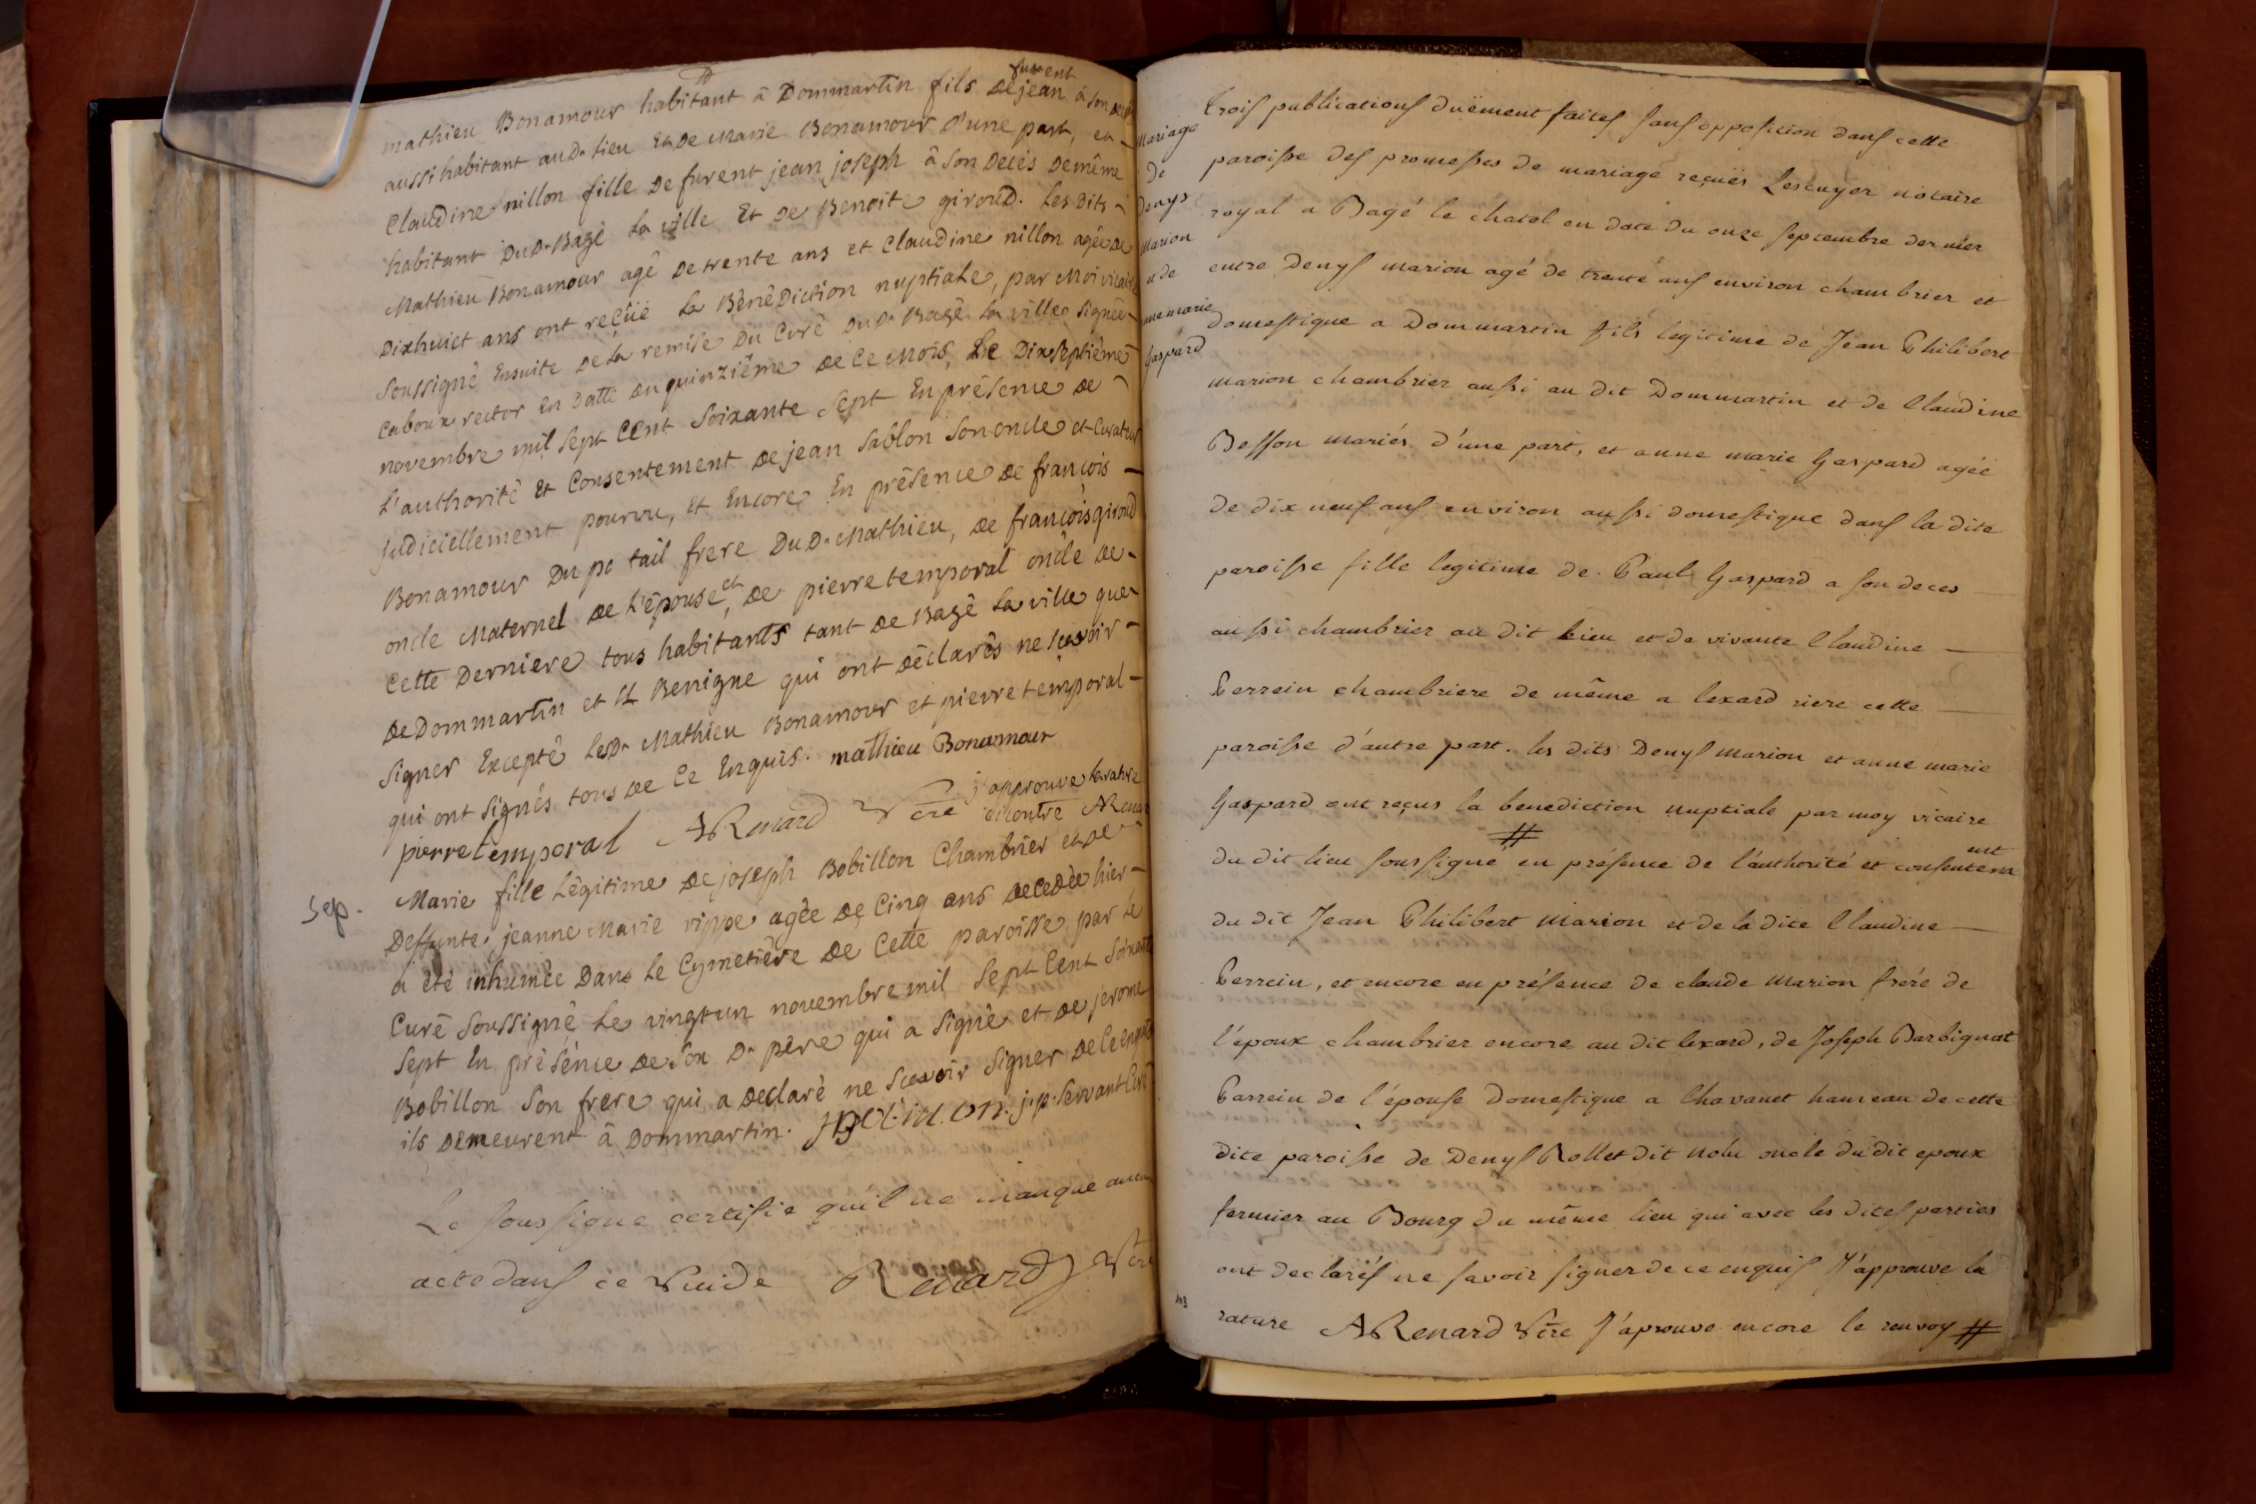 furent
mathieu Bonamour habitant à Dommartin fils De jean à son
aussi habitant aud. lieu Et De Marie Bonamour d'une part, et
Claudine nillon fille De furent jean joseph à son Decès De même
habitant Dud. Bagé la ville Et De Benoite giroud. Les Dits
Mathieu Bonamour agé De trente ans et Claudine nillon agée De
Dixhuict ans ont reçüe la Bénédiction nuptiale, par Moi vicaire
Soussigné Ensuite De la remise Du Curé Dud. Bagé la ville Signée
Caboux rector En Datte Du quinzième De Ce Mois, Le Dixseptième
novembre mil sept Cent Soixante Sept En présence De
L'authorité Et Consentement De jean Sablon Son oncle et Curateur
judiciellement pourvu, Et Encore En présence De françois
Bonamour Du po tail frere Dud. Mathieu, De françois giroud
oncle Maternel De L'épouse, et De pierre temporal oncle De
Cette Derniere tous habitants tant De Bagé La ville que
De Dommartin et St Benigne qui ont Déclarés ne sçavoir
Signer Excepté Lesd. Mathieu Bonamour et pierre temporal
qui ont Signés tous De Ce Enquis. mathieu Bonamour
pierre temporal ARenard Vcre j'approuve la rature
cicontre ARenar
Sep.
Marie fille Légitime De joseph Bobillon Chambrier et De
Deffunte jeanne Marie rippe agée De Cinq ans Decedée hier
a été inhumée Dans Le Cymetière De Cette paroisse par le
Curé Soussigné Le vingtun novembre mil Sept Cent Soixante
Sept En présence De Son D. père qui a Signé et De jerome
Bobillon Son frere qui a Declaré ne Scavoir Signer De Ce enquis
ils Demeurent à Dommartin. j. p. Servant Curé
Le soussigne certifie qu'il ne manque aucun
acte dans ce Vuide Renard Vcre
Mariage
de
Denys
Marion
et de
anne marie
Gaspard
Trois publications duëment faites sans opposition dans cette
paroisse des promesses de mariage reçuës Lescuyer notaire
royal a Bagé le chatel en date du onze septembre dernier
entre Denys Marion agé de trente ans environ chambrier et
domestique a Dommartin fils legitime de Jean Philibert
Marion chambrier aussi au dit Dommartin et de Claudine
Besson mariés d'une part, et anne marie Gaspard agée
de dix neuf ans environ aussi domestique dans la dite
paroisse fille legitime de Paul Gaspard a son deces
aussi chambrier au dit lieu et de vivante Claudine
Perrein chambriere de même a lexard riere cette
paroisse d'autre part. les dits Denys Marion et anne marie
Gaspard ont reçus la benediction nuptiale par moy vicaire
du dit lieu soussigné # en présence de l'authorité et consentement
du dit Jean Philibert Marion et de la dite Claudine
Perrein, et encore en présence de claude Marion frére de
l'époux chambrier encore au dit lexard, de Joseph Barbignat
Parrein de l'épouse domestique a Chavanet hameau de cette
dite paroisse de Denys Rollet dit Nolu oncle du dit epoux
fermier au Bourg du même lieu qui avec les dites parties
ont declarés ne savoir signer de ce enquis J'approuve la
rature ARenard Vcre J'aprouve encore le renvoy #
113